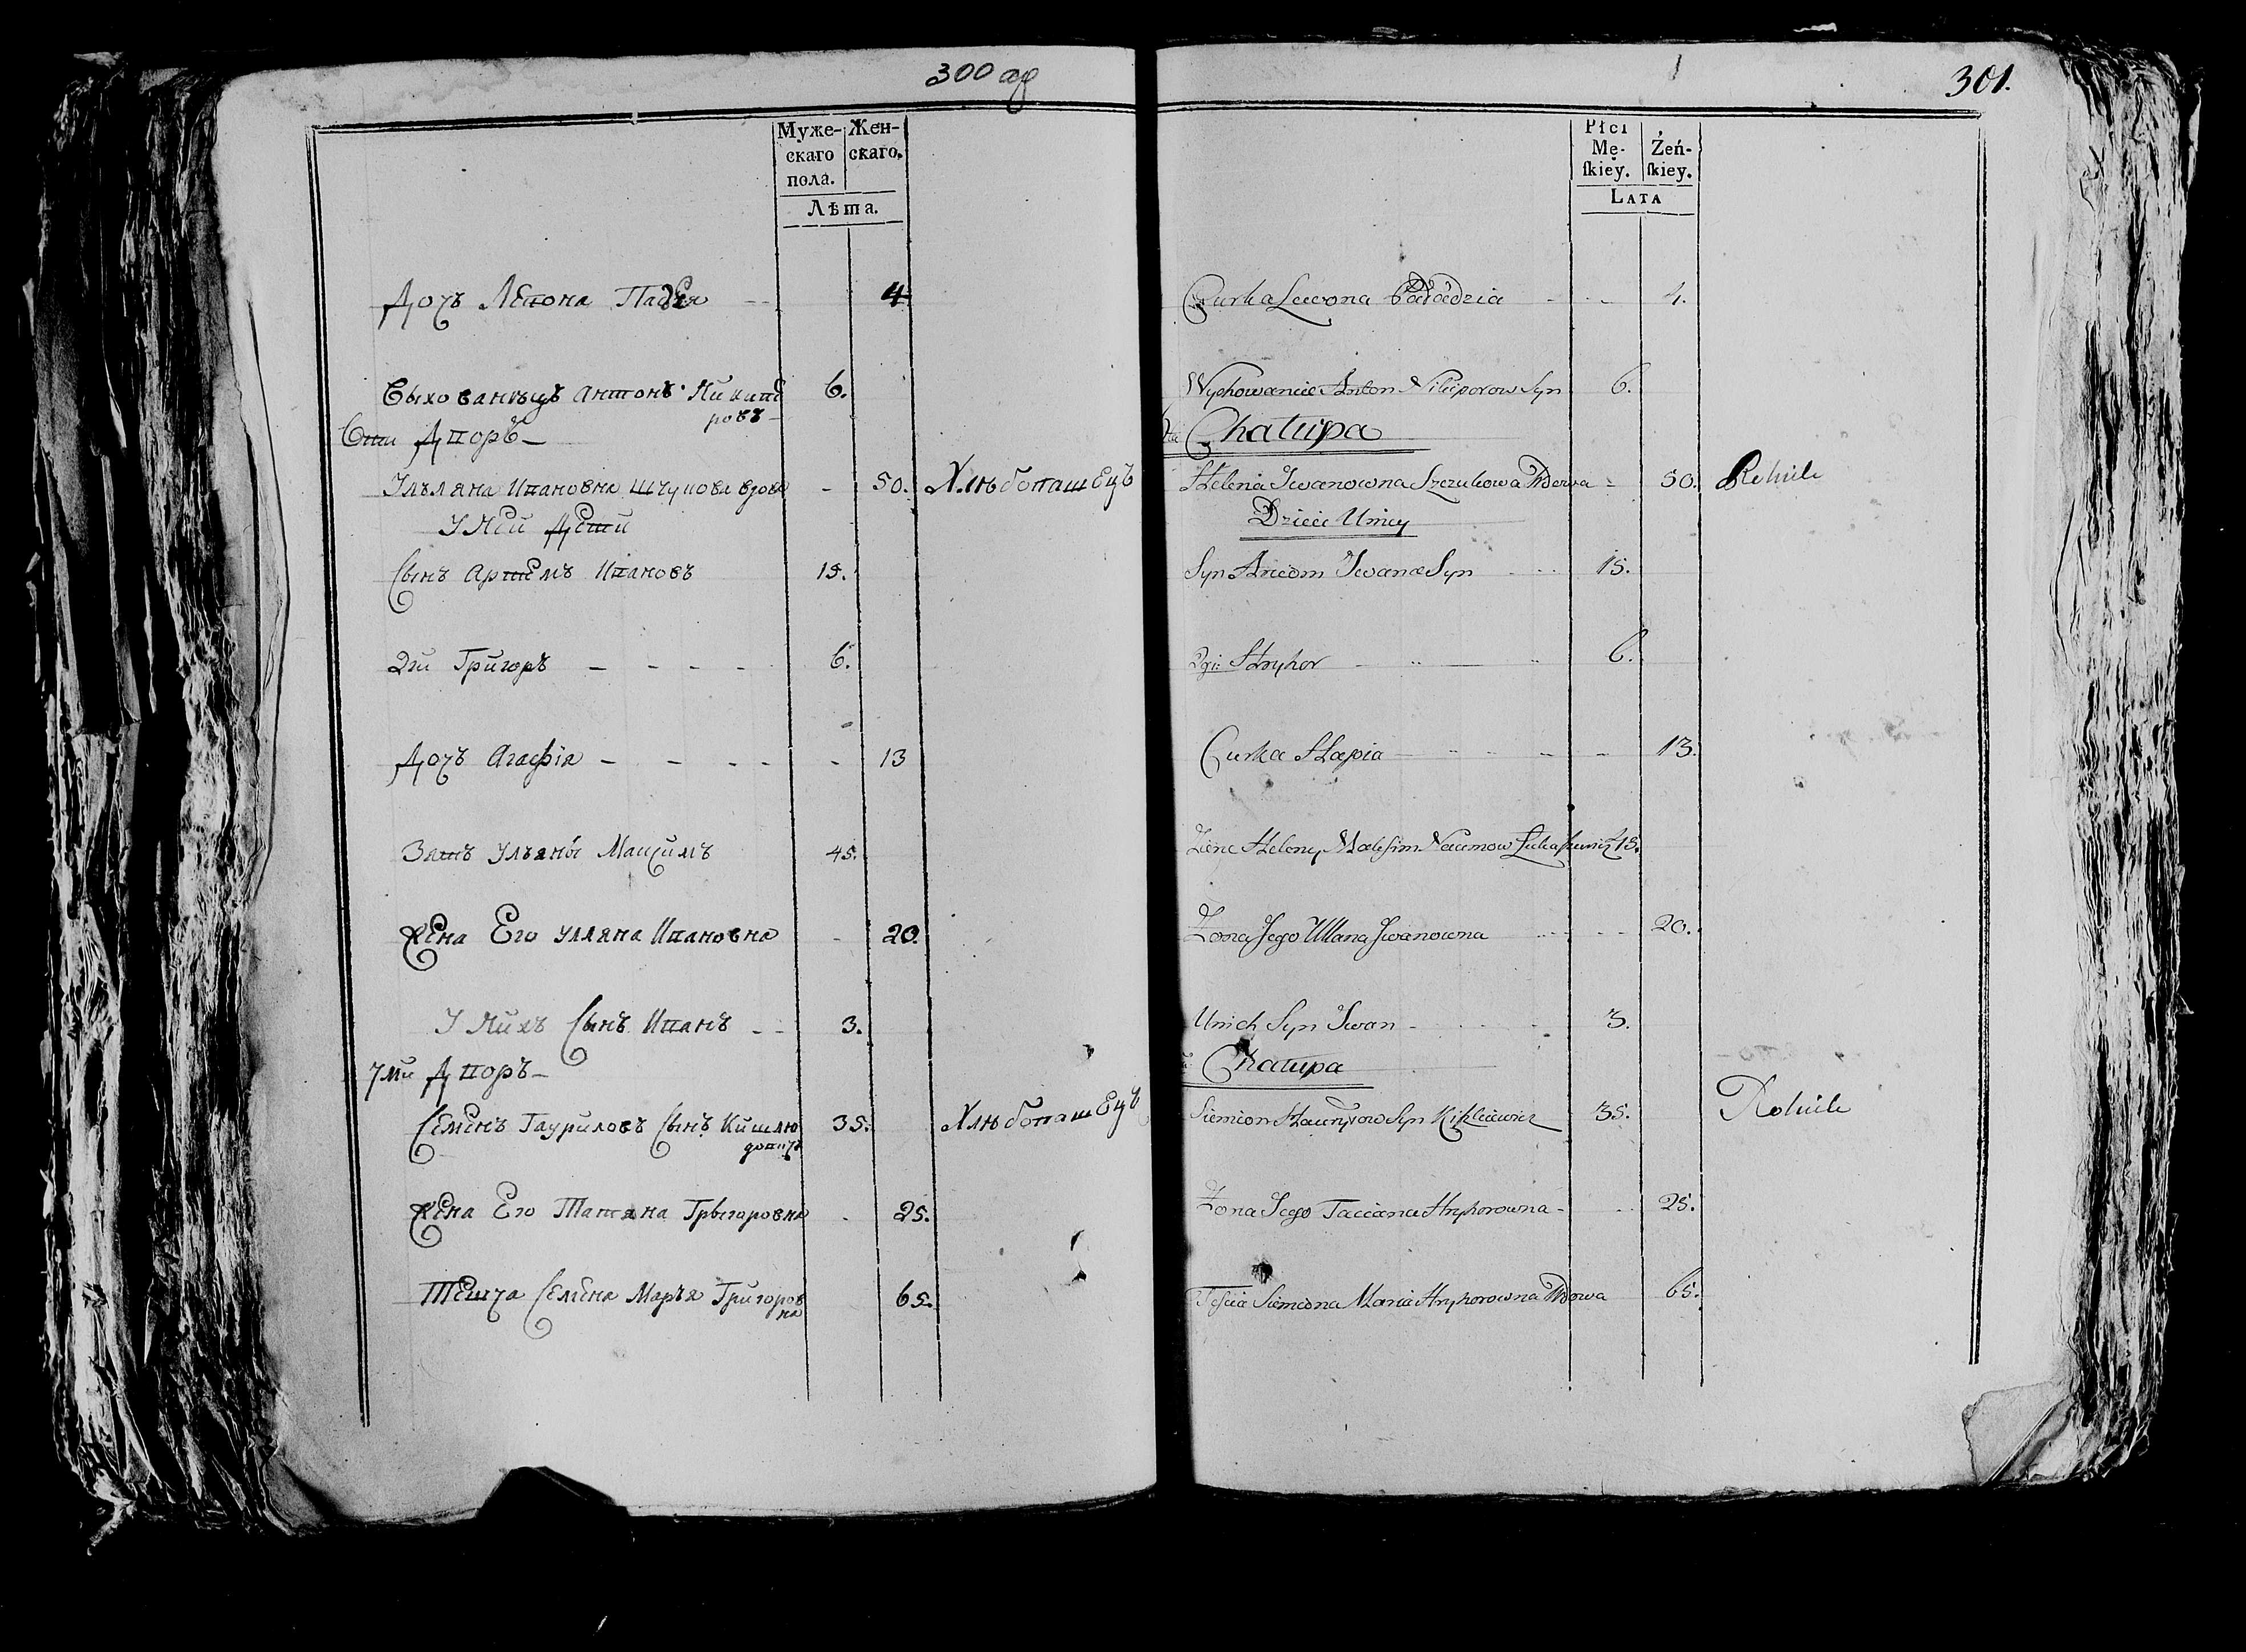 300 об
Муже-
скаго
пола.
Жен-
скаго.
Лѣта.
Дочъ Левона 4
Выхованецъ Антонъ Никипе 6.
ровъ
6ти Дворъ
Улъляна Ивановна Щукова вдова 50. Хлѣбопашецъ
У Ней Дети
Сынъ Артемъ Ивановъ 15.
2гй Григоръ 6.
Дочъ Агафія 13
Зять Ульяны Максимъ 45.
Жена Его Улляна Ивановна 20.
У Нихъ Сынъ Иванъ 3.
7мй Дворъ
Семенъ Гауриловъ Сынъ 35. Хлѣбопашецъ
Жена Его Татяна Грыгоровна 25.
Тешча Семена Маръя Григоров 65.
на
301.
Płci
Mę-
ſkiey.
Żeń-
ſkiey.
LATA
Curka Lewona 4.
Wychowaniec Anton Nikiporow Syn 6.
Chałupa
Helena Iwanowna Szczukowa Wdowa 50. Rolnik
Dzieci Unicy
Syn Arciom Iwana Syn 15.
2gi Hryhor 6.
Curka Hapia 13.
Zięnc Heleny Maksim Naumow 45.
Zona Jego Ullana Iwanowna 20.
Unich Syn Iwan 3.
Chałupa
Siemion Hawryłow Syn 35. Rolnik
Zona Jego Taciana Hryhorowna 25.
Teścia Siemiona Maria Hryhorowna Wdowa 65.